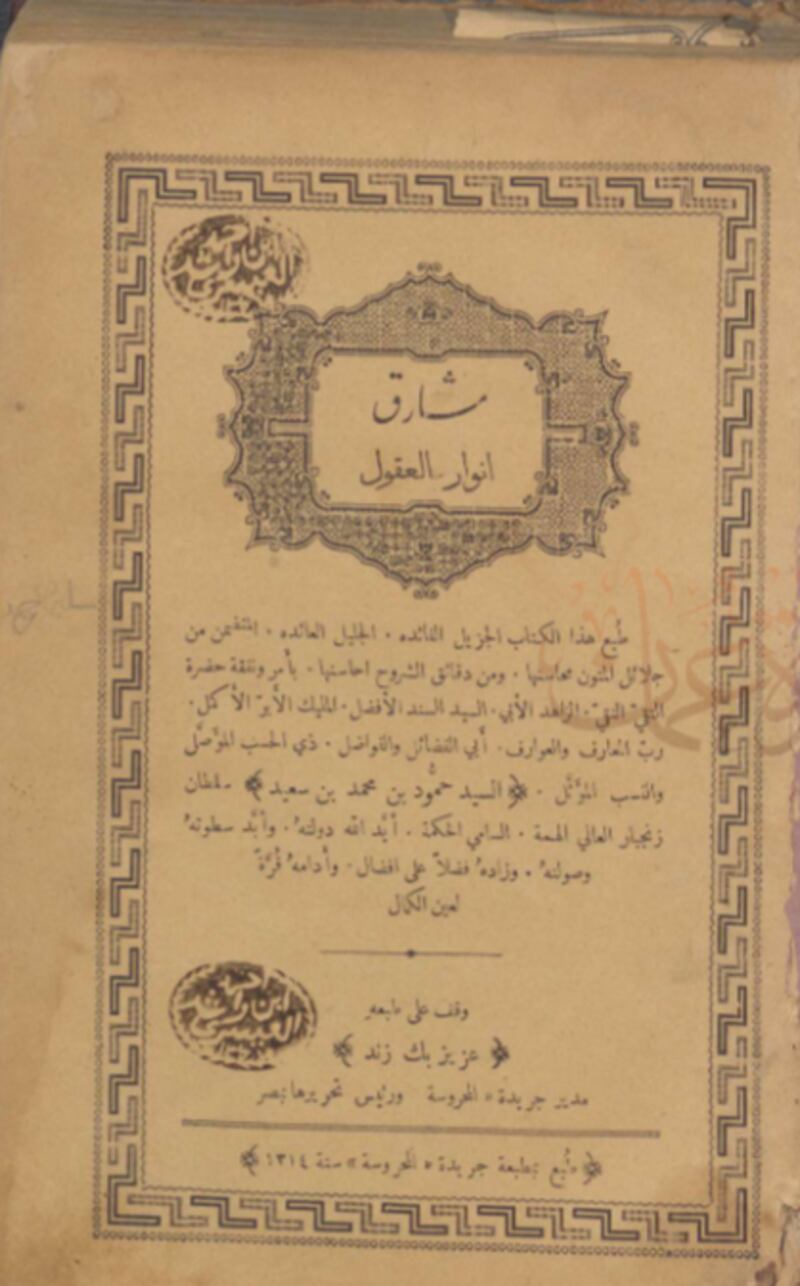 مشارق
انوار العقول
طُبع هذا الكتاب الجزيل الفائده ٠ الجليل العائده ٠ المتضمن من
جلائل المتون محاسنها ٠ ومن دقائق الشروح احاسنها ٠ بأمر ونفقة حضرة
التقيّ النقيّ ٠ الزاهد الأبي ٠ السيد السند الأفضل ٠ المليك الأبرّ الأكمل ٠
ربّ المعارف والعوارف ٠ أبي الفضائل والفواضل ٠ ذي الحسب المؤصَّل
والنسب المؤثَّل ٠ ﴿ السيد حمُّود بن محمد بن سعيد ﴾ سلطان
زنجبار العالي الهمة ٠ السامي الحكمة ٠ أيَّد الله دولتهُ ٠ وأبَّد سطوتهُ
وصولتهُ ٠ وزادهُ فضلاً على افضال ٠ وأدامهُ قُرَّةً
لعين الكمال
وقف على طبعهِ
﴿ عزيز بك زند ﴾
مدير جريدة « المحروسة ورئيس تحريرها بمصر
﴿ طُبع بمطبعة جريدة « المحروسة » سنة ١٣١٤ ﴾